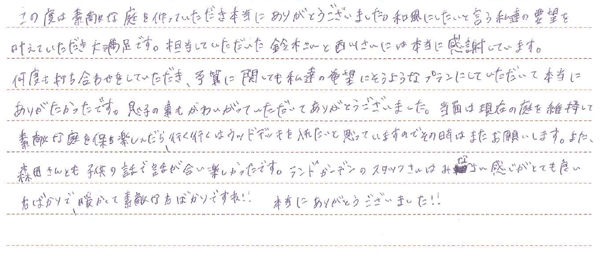 この度は素敵な庭を作っていただき本当にありがとうございました。和風にしたいと言う私達の要望を
叶えていただき大満足です。担当していただいた鈴木さんと西川さんには本当に感謝しています。
何度も打ち合わせをしていただき、予算に関しても私達の希望にそうようなプランにしていただいて本当に
ありがたかったです。息子の事もかわいがっていただいてありがとうございました。当面は現在の庭を維持して
素敵な庭を保ち楽しんだら、行く行くはウッドデッキを入れたいと思っていますのでその時はまたお願いします。また、
森田さんとも子供の話で話が合い楽しかったです。ランドガーデンのスタッフさんはみなさい感じがとても良い
方ばかりで、暖かくて素敵な方ばかりですね!! 本当にありがとうございました!!